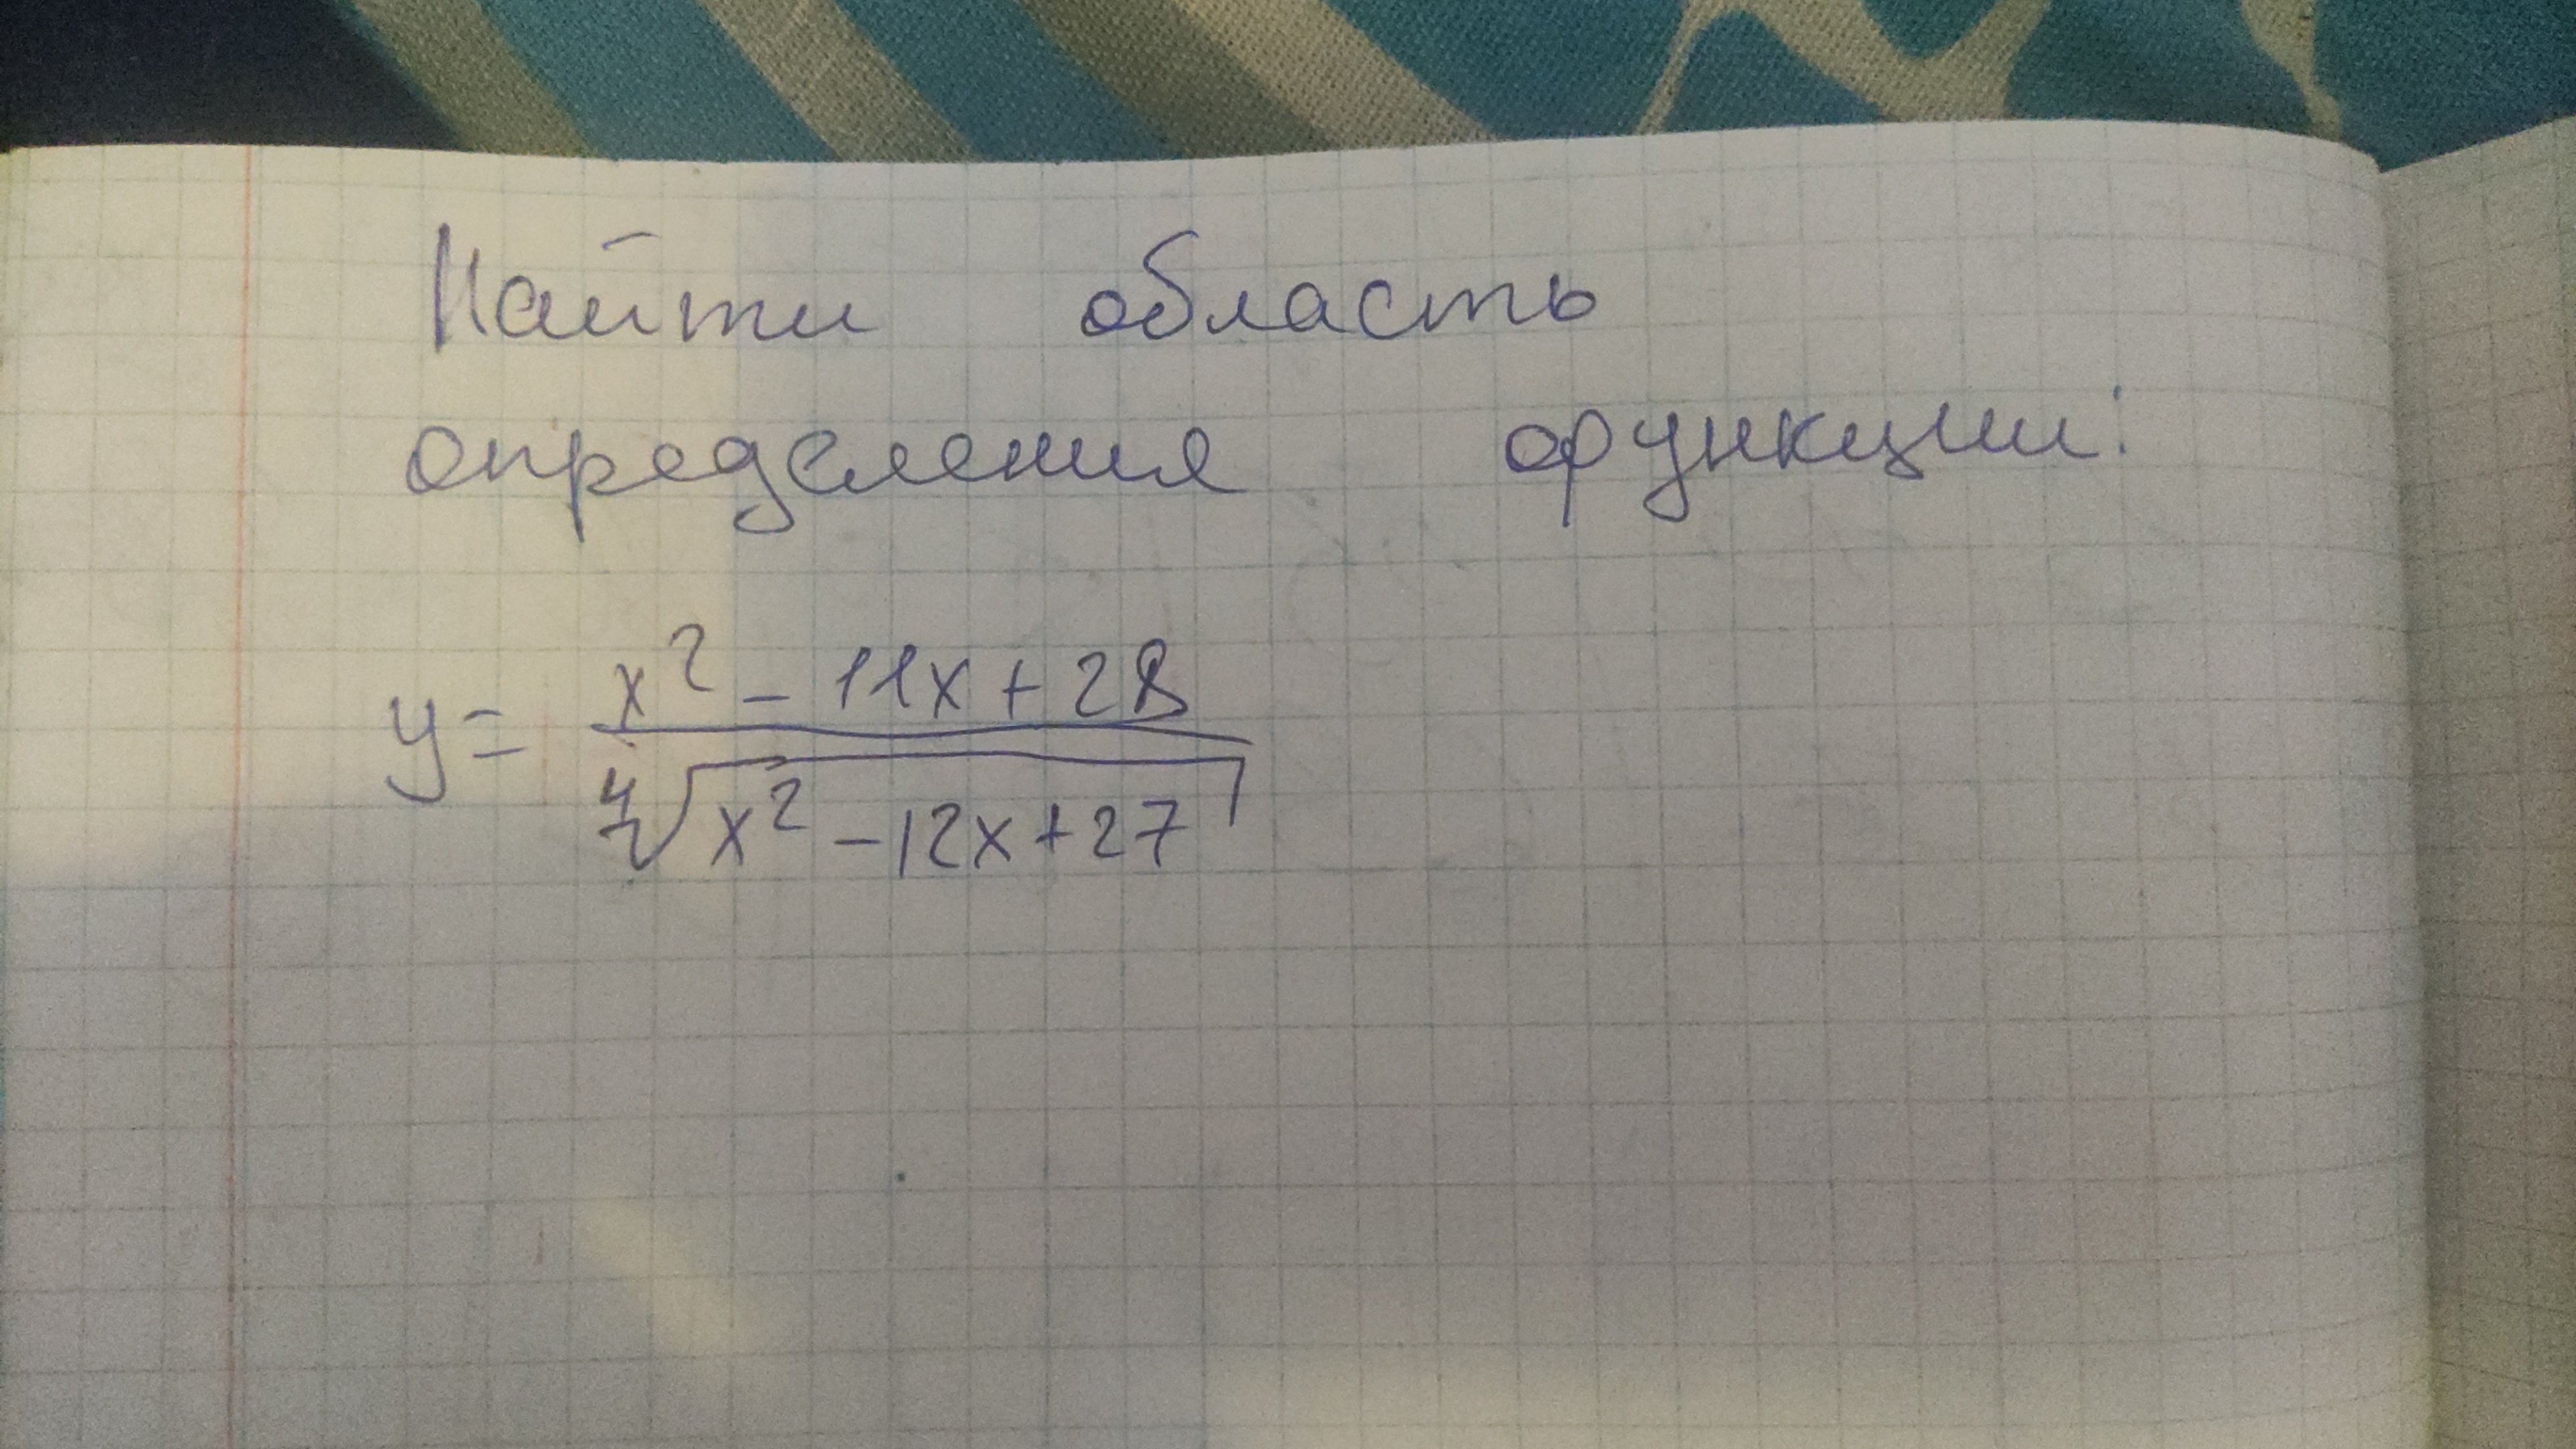 Найти область
определения функции:
y = \frac{x^2 - 11x + 28}{\sqrt[4]{x^2 - 12x + 27}}